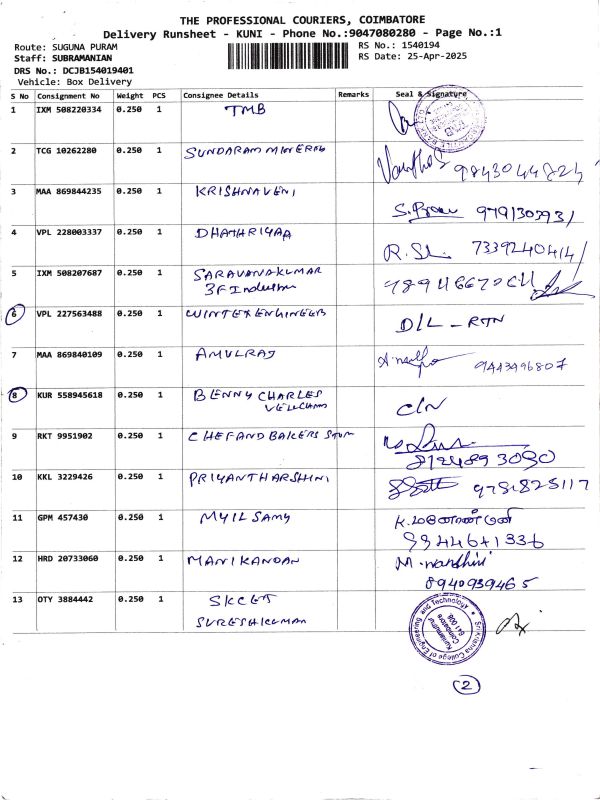 THE PROFESSIONAL COURIERS, COIMBATORE
Delivery Runsheet - KUNI - Phone No.:9047080280 - Page No.:1
Route: SUGUNA PURAM
RS No.: 1540194
Staff: SUBRAMANIAN
RS Date: 25-Apr-2025
DRS No.: DCJB154019401
Vehicle: Box Delivery
S No Consignment No Weight PCS Consignee Details Remarks Seal & Signature
1 IXM 508220334 0.250 1 TMB
2 TCG 10262280 0.250 1 SUNDARAM
3 MAA 869844235 0.250 1 KRISHNAVENI
4 VPL 228003337 0.250 1 DHATHRIYAA R.SL 7339240414
5 IXM 508207687 0.250 1 SARAVANAKUMAR
3F
6 VPL 227563488 0.250 1 WINTEX ENGINEER D/L - RTN
7 MAA 869840109 0.250 1 AMULRAJ 9443496807
8 KUR 558945618 0.250 1 BENNY CHARLES C/N
9 RKT 9951902 0.250 1 CHEF AND BAKERS
8124893090
10 KKL 3229426 0.250 1 PRIYANTHARSHINI
11 GPM 457430 0.250 1 MYILSAMY
12 HRD 20733060 0.250 1 MANIKANDAN M.nandhini
8940939465
13 OTY 3884442 0.250 1 SKCET
SURESHKUMAR
Sri Krishna College of Engineering and Technology
Kuniamuthur
Coimbatore
641 008
2